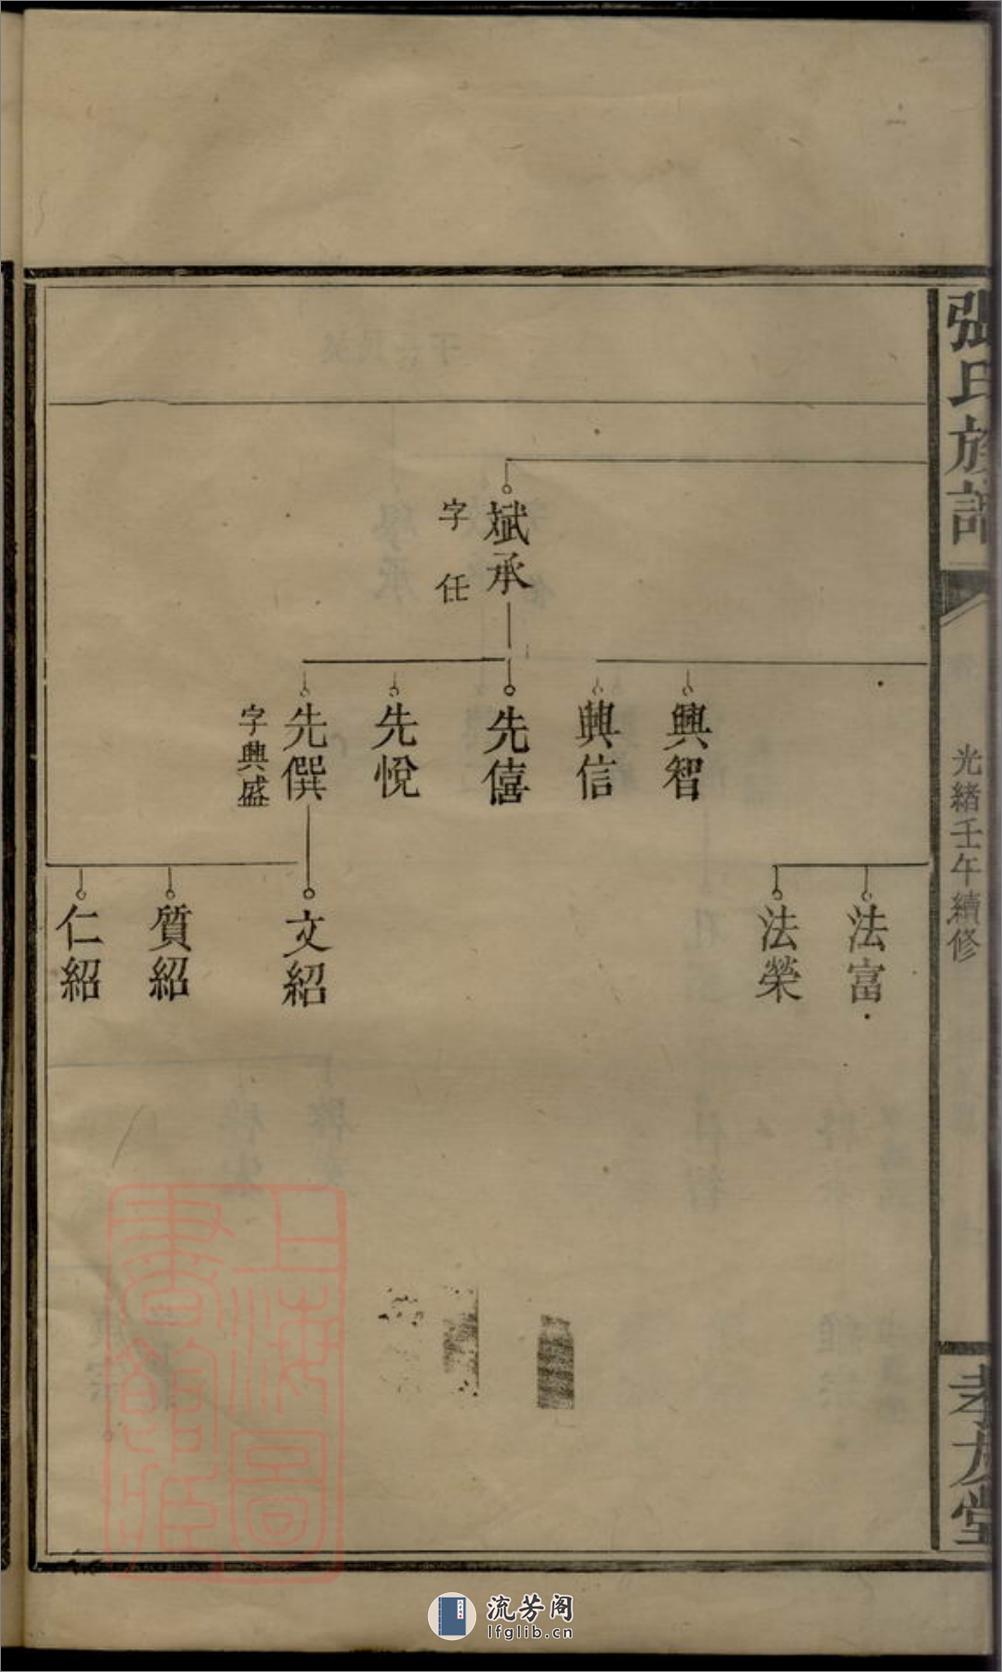 張氏族譜
光緒壬午續修
孝友堂
斌承
字任
興智
興信
先僖
先悅
先僎
字興盛
法富
法榮
文紹
質紹
仁紹
上海圖
書館藏
流芳阁
lfglib.cn